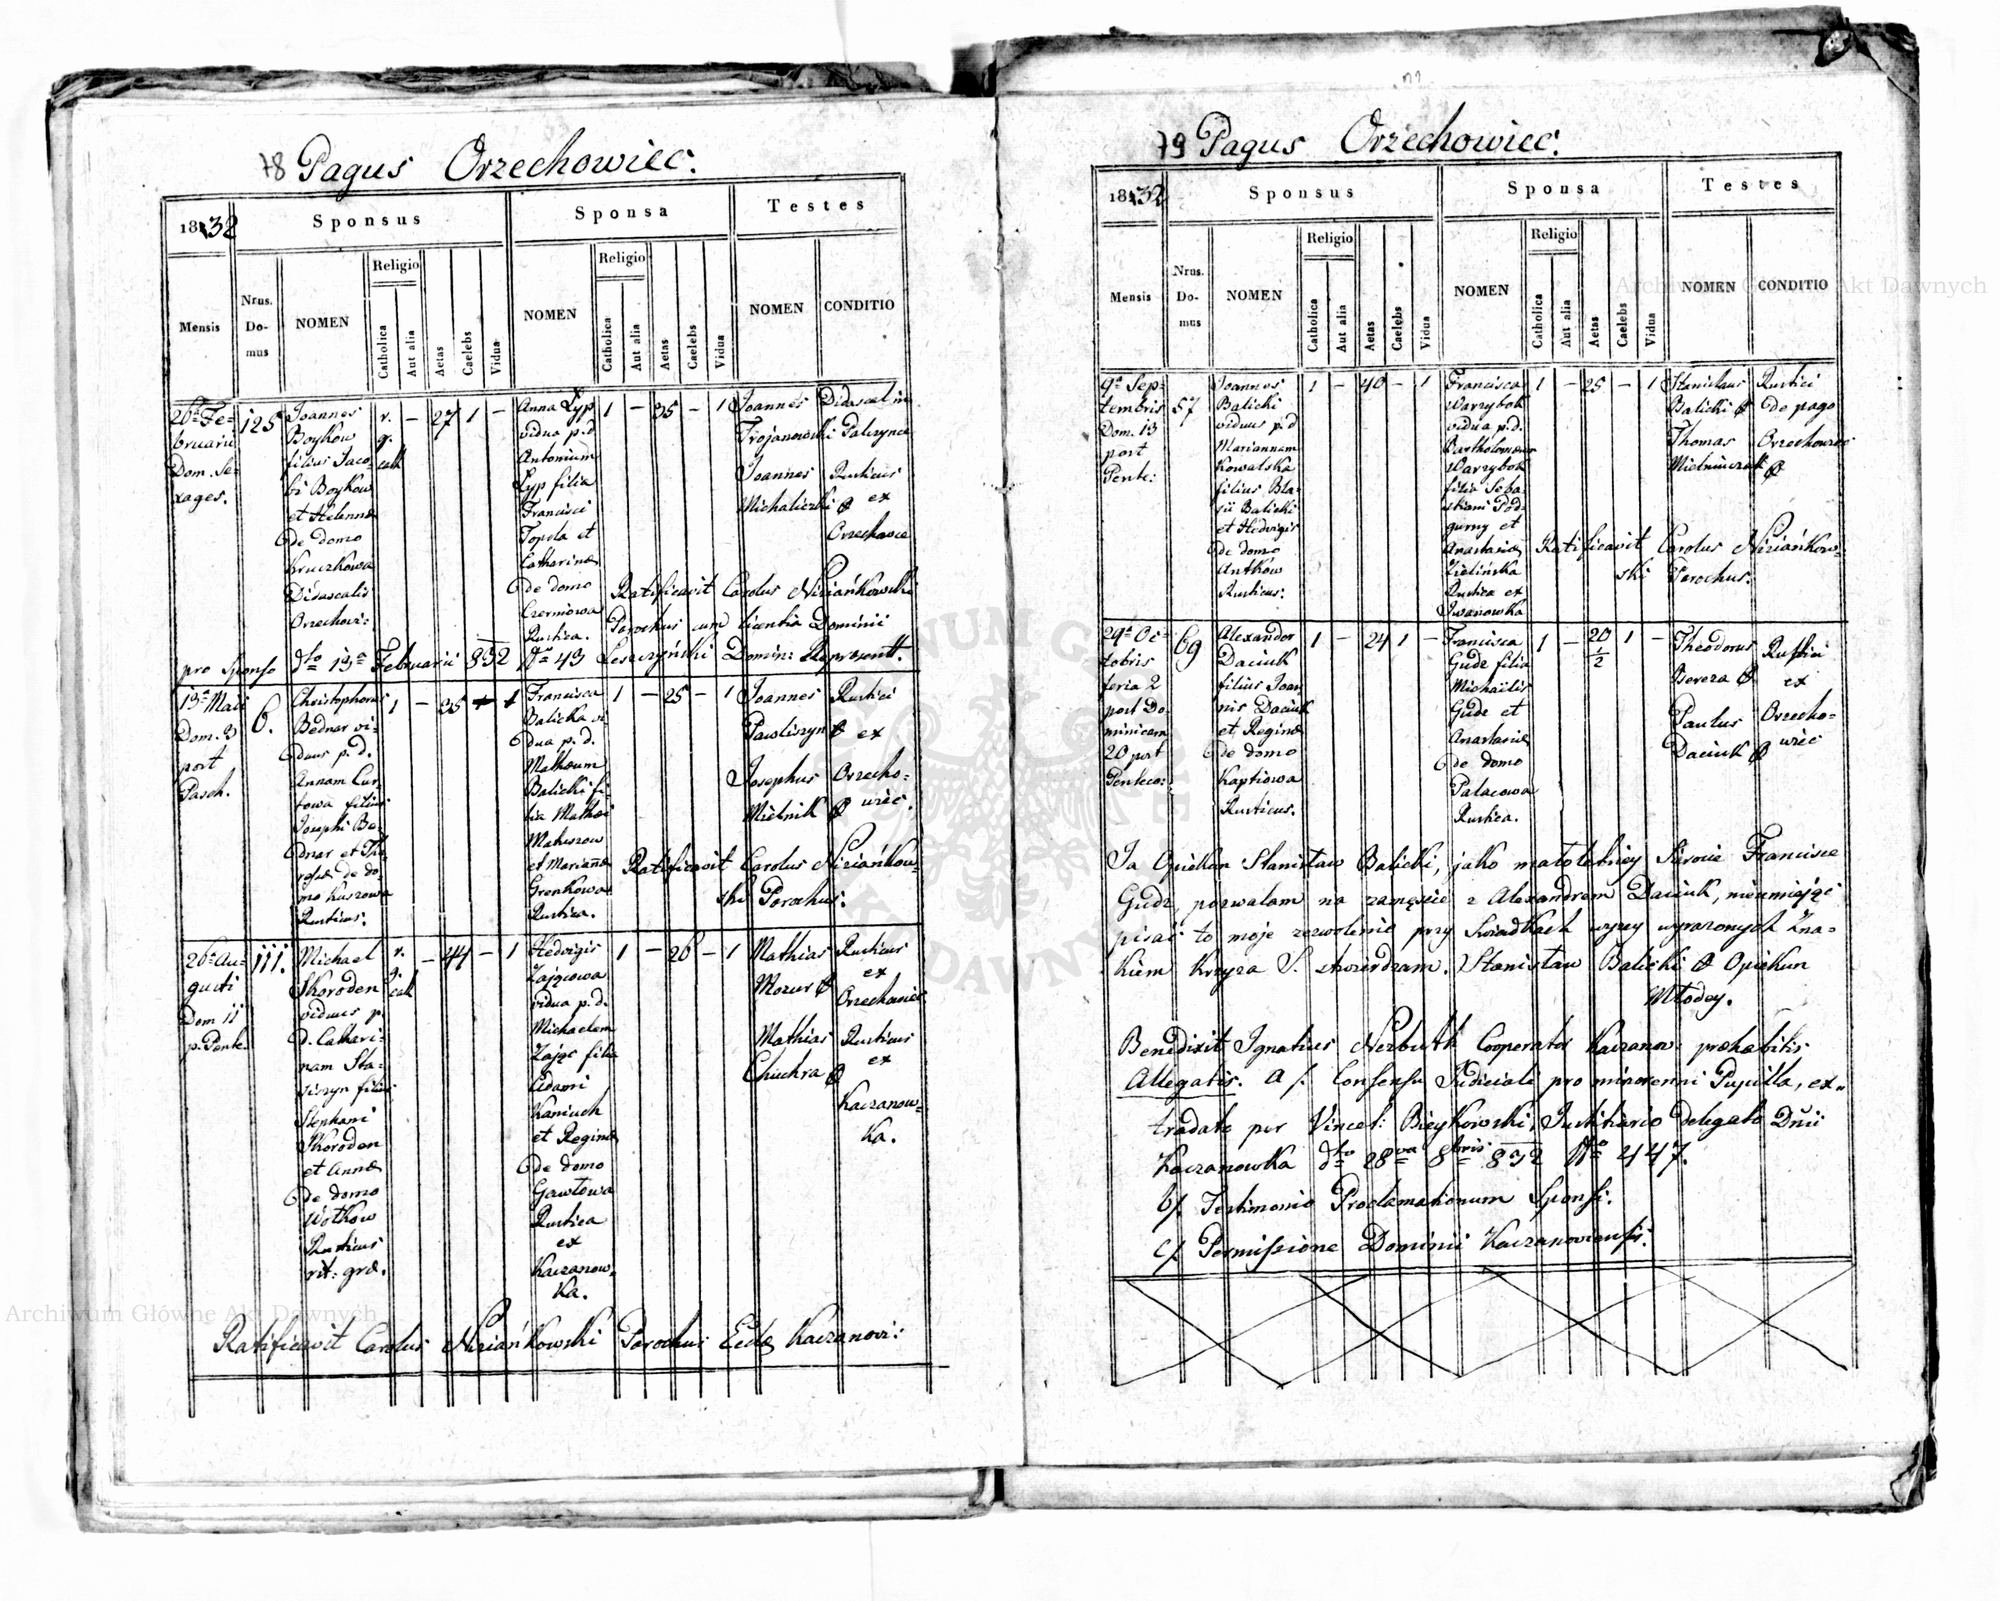 78 Pagus Orzechowiec.
1832
Sponsus
Sponsa
Testes
Mensis
Nrus. Do- mus
NOMEN
Religio
Catholica
Aut alia
Aetas
Caelebs
Vidua
NOMEN
Religio
Catholica
Aut alia
Aetas
Caelebs
Vidua
NOMEN
CONDITIO
26ª Fe-
bruarii
Dom. Se-
xages.
125
Joannes
Boykow
filius Jaco-
bi Boykow
et Helenæ
de domo
Kruczkowa
Didascalis
Orzechovi:
r.
g.
cath
– 27 1 –
Anna Lyp
vidua p.d.
Antonium
Lyp filia
Francisci
Topola et
Catharinæ
de domo
Czerniowa
Rustica.
1 – 35 – 1
Joannes
Trojanowski
Joannes
Michaliczki
Rusticus
ex
Ratificavit Carolus Niziańkowski
Parochus cum licentia Dominii
pro Sponso dto 13ª Februarii 832 Nro 43 Leszczyński Domin: Represent.
13ª Maii
Dom. 3
post
Pasch.
6.
Christophorus
Bednar vi-
duus p.d.
Annam Cur-
towa filius
Josephi Be-
dnar et The-
reslæ de do-
mo Kuszowa
Rusticus.
1 – 35 – 1
Francisca
Balicka vi-
dua p.d.
Matheum
Balicki fi-
lia Mathæi
Matuszow
et Mariannæ
Grenkowa
Rustica.
1 – 25 – 1
Joannes
Pawliszyn
Josephus
Mielnik
Rustici
ex
Orzecho-
wiec.
Ratificavit Carolus Niziańkow-
ski Parochus.
26ª Au-
gusti
Dom 11
p. Pente.
111.
Michael
Skoroden
viduus p.
d. Cathari-
nam Sta-
siszyn filius
Stephani
Skoroden
et Annæ
de domo
Wołkow
Rusticus
rit: græ.
r.
g.
cath
– 44 – 1
Hedvigis
Zającowa
vidua p.d.
Michaelem
Zając filia
Adami
Kaniuch
et Reginæ
de domo
Gawłowa
Rustica
ex
Kaczanow-
ka.
1 – 26 – 1
Mathias
Mozur
Mathias
Chuchra
Rusticus
ex
Orzechowiec
Rusticus
ex
Kaczanow-
ka.
Ratificavit Carolus Niziańkowski Parochus Eccłæ Kaczanovi:
79 Pagus Orzechowiec.
1832
Sponsus
Sponsa
Testes
Mensis
Nrus. Do- mus
NOMEN
Religio
Catholica
Aut alia
Aetas
Caelebs
Vidua
NOMEN
Religio
Catholica
Aut alia
Aetas
Caelebs
Vidua
NOMEN
CONDITIO
9ª Sep-
tembris
Dom. 13
post
Pente:
57
Joannes
Balicki
viduus p.d
Mariannam
Kowalska
filius Bla-
sii Balicki
et Hedvigis
de domo
Antków
Rusticus.
1 – 40 – 1
Francisca
Warzybok
vidua p.d.
Bartholomeum
Warzybok
filia Seba-
stiani Pod-
gurny et
Anastasiæ
Zielińska
Rustica ex
Iwanowka
1 – 25 – 1
Stanislaus
Balicki
Thomas
Mielniczuk
Rustici
de pago
Orzechowiec
Ratificavit Carolus Niziańkow-
ski Parochus.
29ª Oc-
tobris
feria 2
post Do-
minicam
20 post
Penteco:
69
Alexander
Daciuk
filius Joan-
nis Daciuk
et Reginæ
de domo
Kaptiowa
Rusticus.
1 – 24 1 –
Francisca
Gudz filia
Michaïlis
Gudz et
Anastasiæ
de domo
Palacowa
Rustica.
1 – 20 1/2 1 –
Theodorus
Bereza
Paulus
Daciuk
Rustici
ex
Orzecho-
wiec
Ja Opiekun Stanisław Balicki, jako małoletniey Sirocie Francisce
Gudz, pozwalam na zamęscie z Alexandrem Daciuk, nieumiejąc
pisać to moje zezwolenie przy Swiadkach wyzey wyrazonych Zna-
kiem Krzyza S. stwierdzam. Stanisław Balicki Opiekun
Młodey.
Benedixit Ignatius Nerbutk Cooperator Kaczanow: præhabitis
Allegatis. a/. Consensu Judiciali pro minorenni Pupilla, ex-
tradato per Vincet: Bieykowski, Justitiario delegato Dñii
Kaczanowka dto 28va 8bris 832 Nro 447.
b/. Testimonio Proclamationum Sponsi.
c/. Permissione Dominii Kaczanoviensis.
Archiwum Główne Akt Dawnych
Archiwum Główne Akt Dawnych